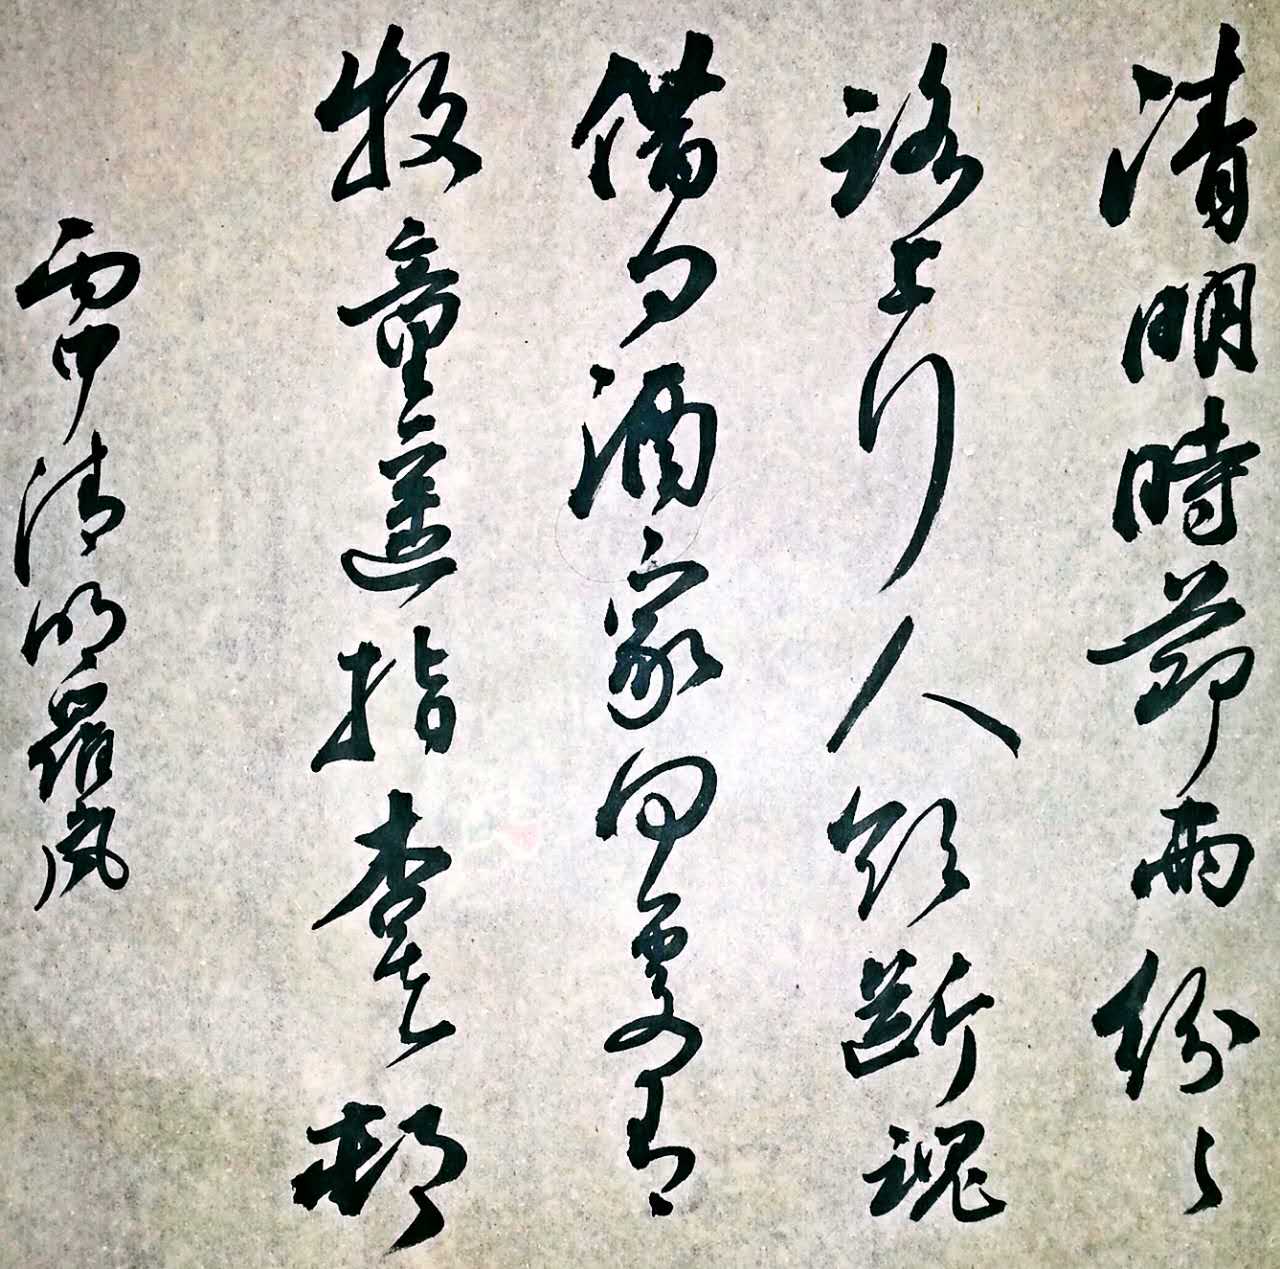 清明時節雨紛々
路上行人欲斷魂
借問酒家何處有
牧童遙指杏花邨
雨中清明羅嵐